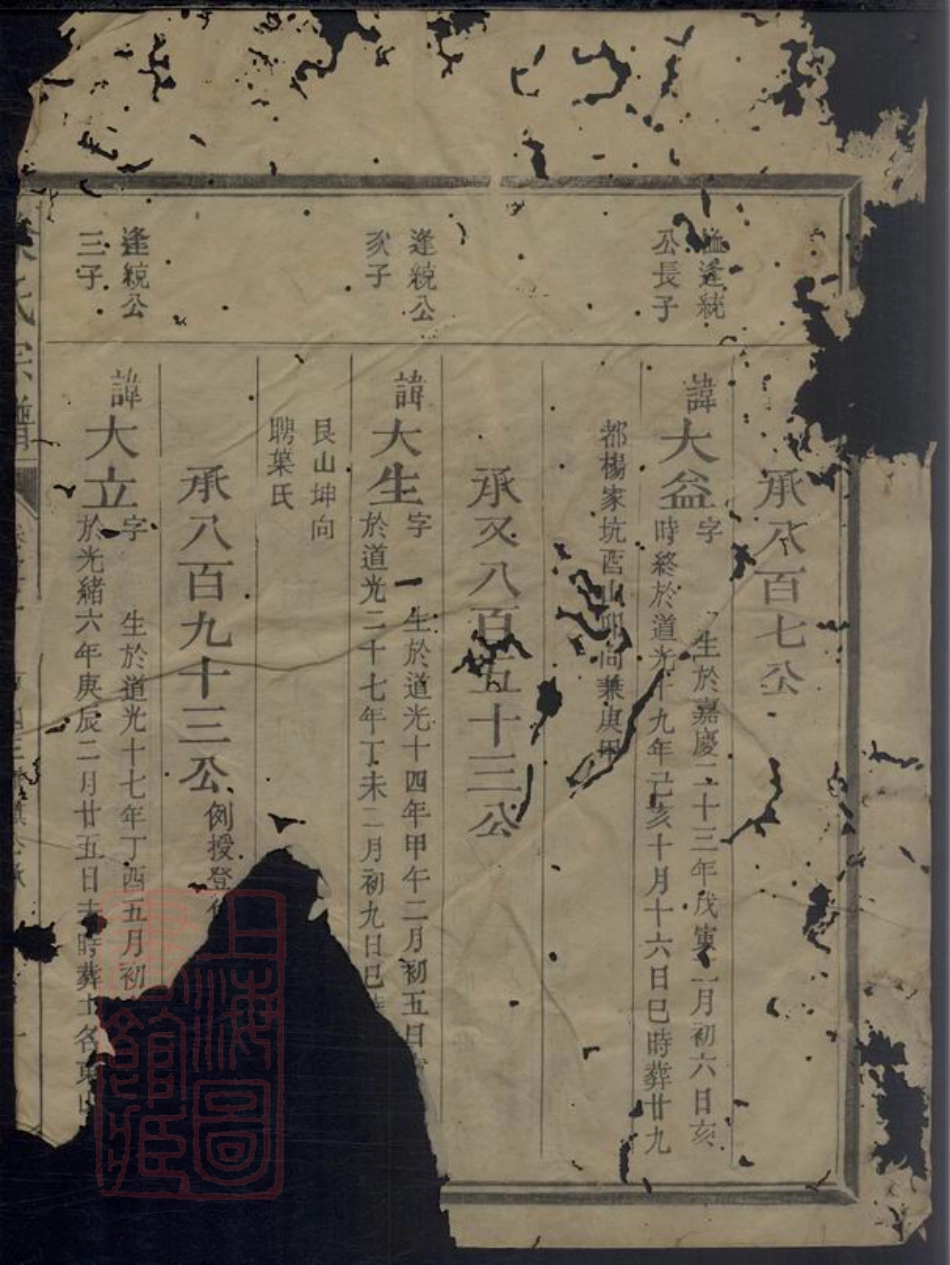 承八百七公
逢統
公長子
諱大益 字 生於嘉慶二十三年戊寅二月初六日亥
時終於道光十九年己亥十月十六日巳時葬廿九
都楊家坑酉山卯向兼庚甲
承又八百五十三公
逢統公
次子
諱大生 字 生於道光十四年甲午二月初五日
於道光二十七年丁未二月初九日巳
艮山坤向
聘葉氏
承八百九十三公 例授登
逢統公
三子
諱大立 字 生於道光十七年丁酉五月初
於光緒六年庚辰二月廿五日 時葬土名東山
氏宗譜
上海圖書館藏